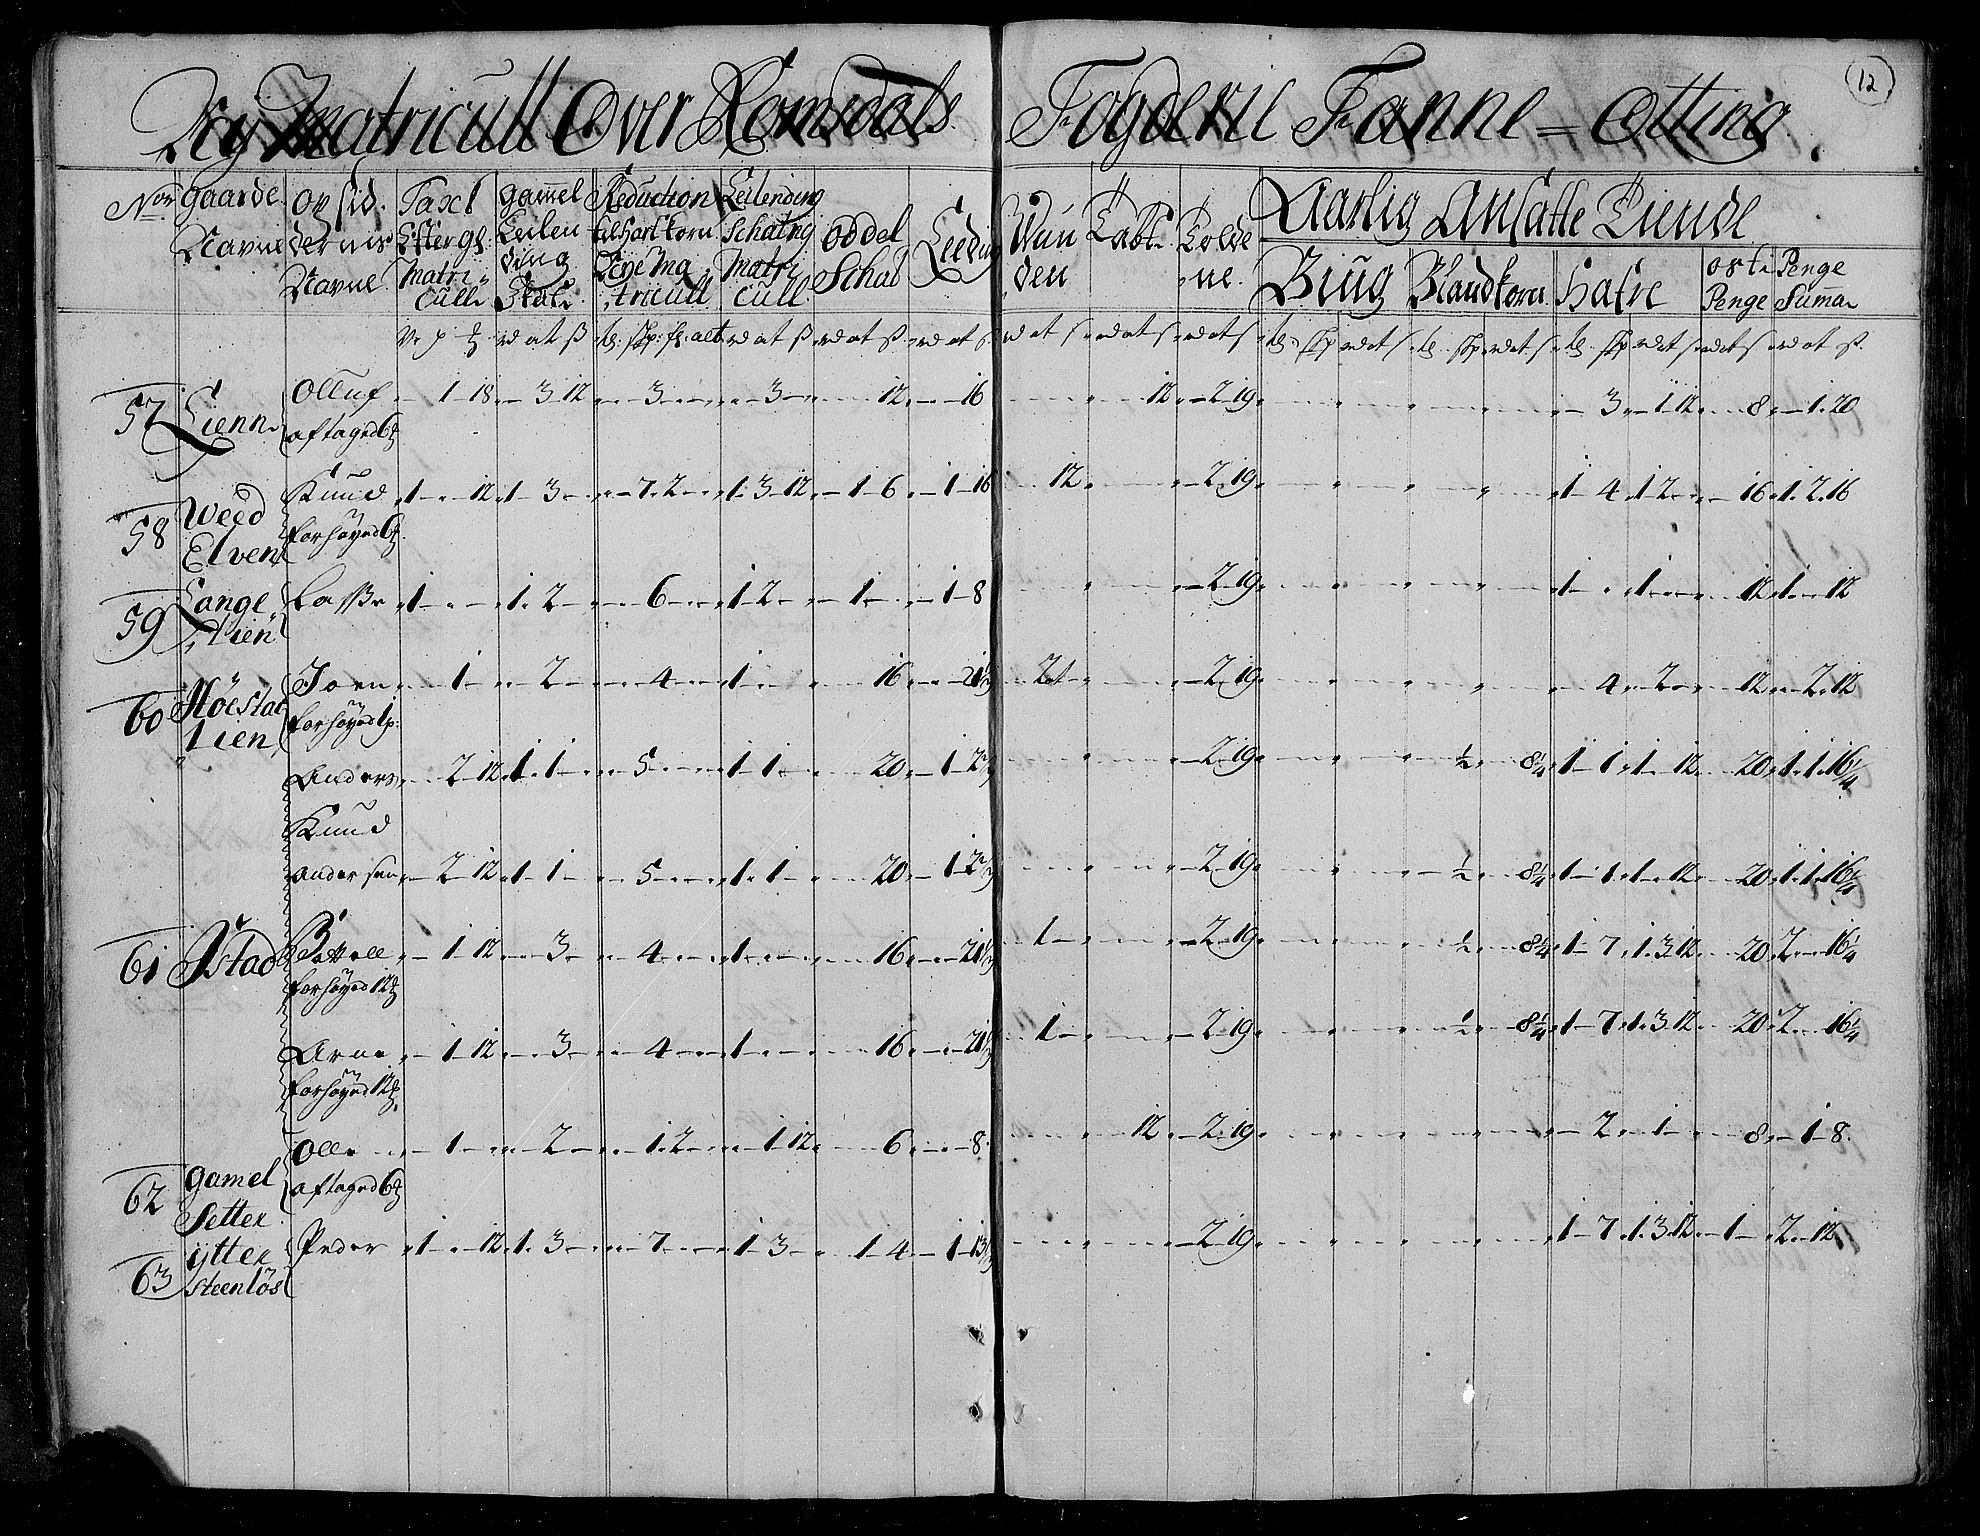 Ny Matricull Over Romsdals Fogderie Fanne = Otting
12
No: gaarde Navne
Opsid: dernis Navne
Taxt Efter gl. Matri cull:
gamel Leilen ding Skat:
Reduction til Hartkorn Neye Ma tricull
Leilending Schatng Matri cull
oddel Schat
Leeding
Wun den
Tolde ne
Aarlig Ansatte Tiende
Biug
Blandkorn
Hafre
Oste Penge
Penge Summa
57 Lienn Olluf 1 18 3 12 3 3 12 16 12 2 19 3 1 12 8 1 20
aftaged 6
58 Weed Knud 1 12 1 3 7 2 1 3 12 1 6 1 16 12 2 19 1 4 1 2 16 1 2 16
Elven forhøyed 6
59 Lange Lasse 1 1 2 6 1 2 1 1 8 2 19 1 1 12 1 12
Lien
60 Høestat Joen 1 2 4 1 16 21⅓ 2 19 4 2 12 2 12
Lien forhøyed 1 p:
Anders 2 12 1 1 5 1 1 20 1 2⅔ 2 19 ½ 8¼ 1 1 1 12 20 1 1 16¼
Knud
andersen 2 12 1 1 5 1 1 20 1 2⅔ 2 19 ½ 8¼ 1 1 1 12 20 1 1 16¼
61 Istad Bottell 1 12 3 4 1 16 21⅓ 1 2 19 ½ 8¼ 1 7 1 3 12 20 2 16¼
forhøyed 12
Arne 1 12 3 4 1 16 21⅓ 1 2 19 ½ 8¼ 1 7 1 3 12 20 2 16¼
forhøyed 12
62 gamel Olle 1 2 1 2 1 12 6 8 12 2 19 2 1 8 1 8
Setter aftaged 6
63 ytter Peder 1 12 1 3 7 1 3 1 4 1 13⅓ 2 19 1 7 1 3 12 1 2 12
steenløs